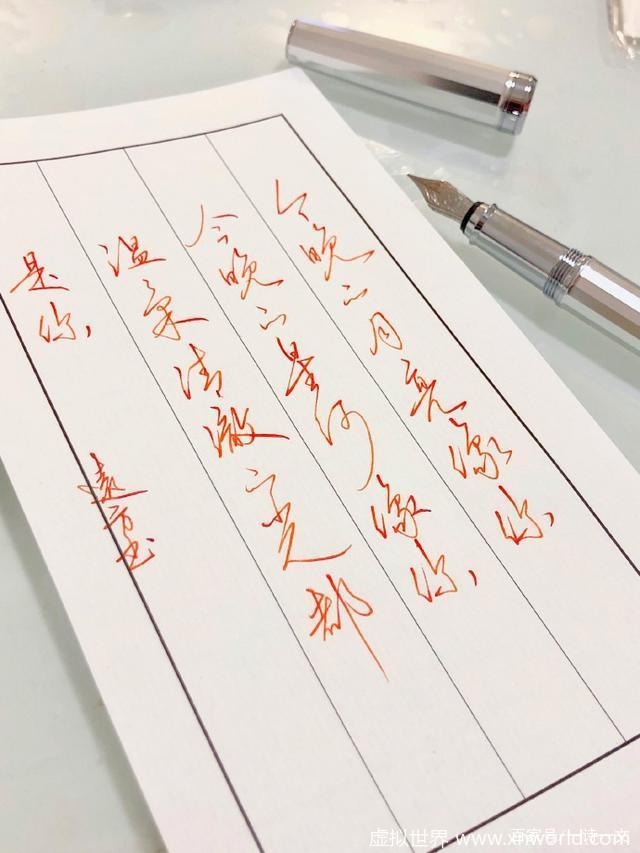 今晚的月亮像你,
今晚的星河像你,
温柔清澈的光都
是你,
遠方书
虚拟世界 www.xnworld.com
百家号